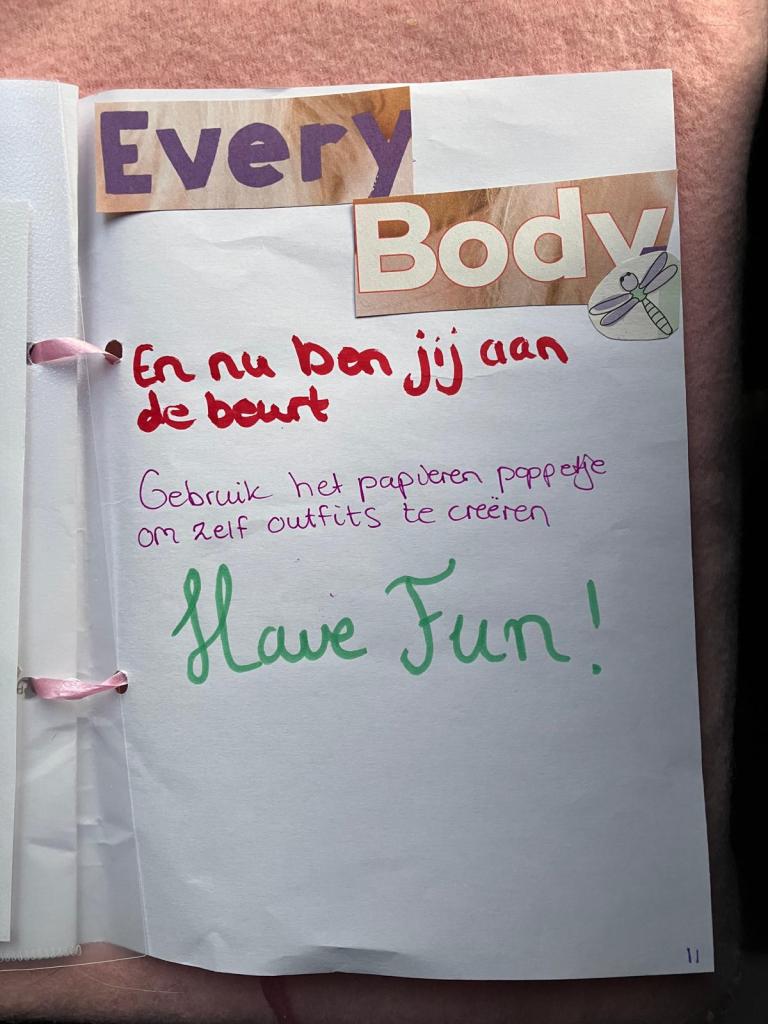 Every
Body
En nu ben jij aan
de beurt
Gebruik het papieren poppetje
om zelf outfits te creëren
Have Fun!
11